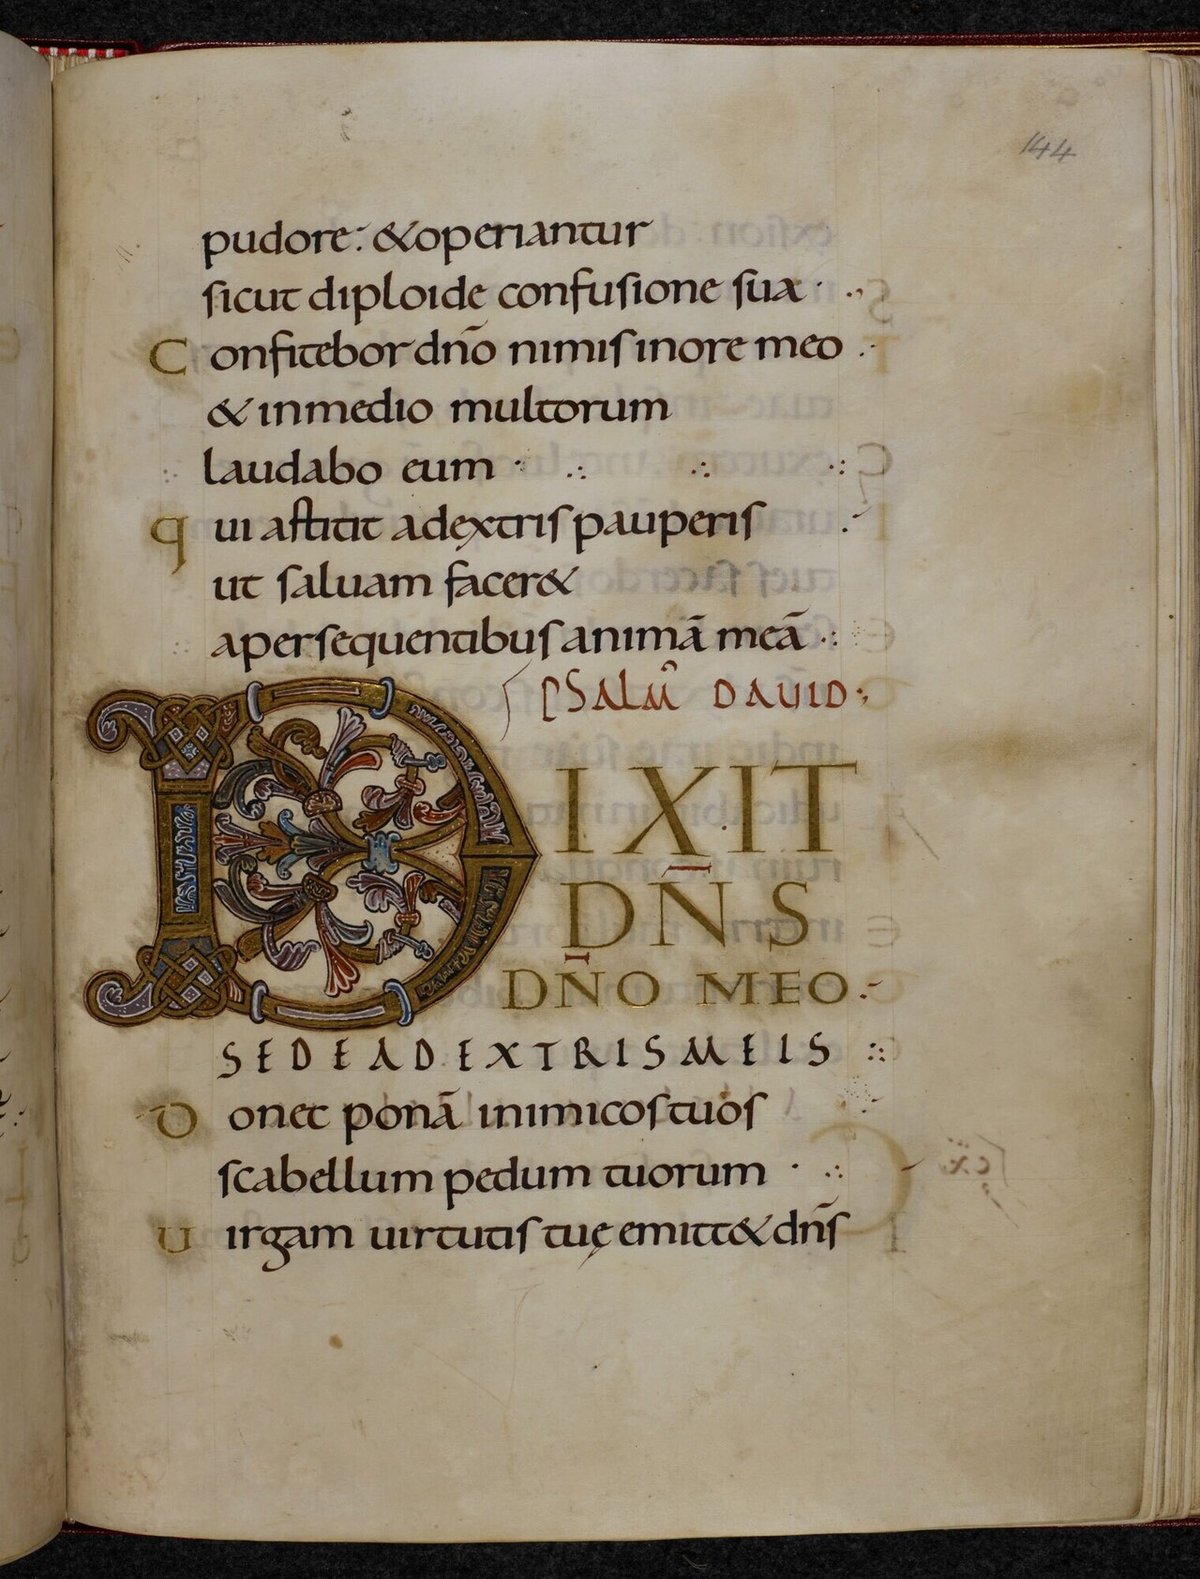 144
pudore: &operiantur
sicut diploide confusione sua ·
Confitebor dño nimis inore meo
& inmedio multorum
laudabo eum
qui astitit adextris pauperis
ut saluam facer&
apersequentibus animā meā
PSALM̃ DAUID
DIXIT
DÑS
DÑO MEO
SEDEADEXTRISMEIS
Donec ponā inimicostuos
scabellum pedum tuorum
Uirgam uirtutis tuę emitt& dñs